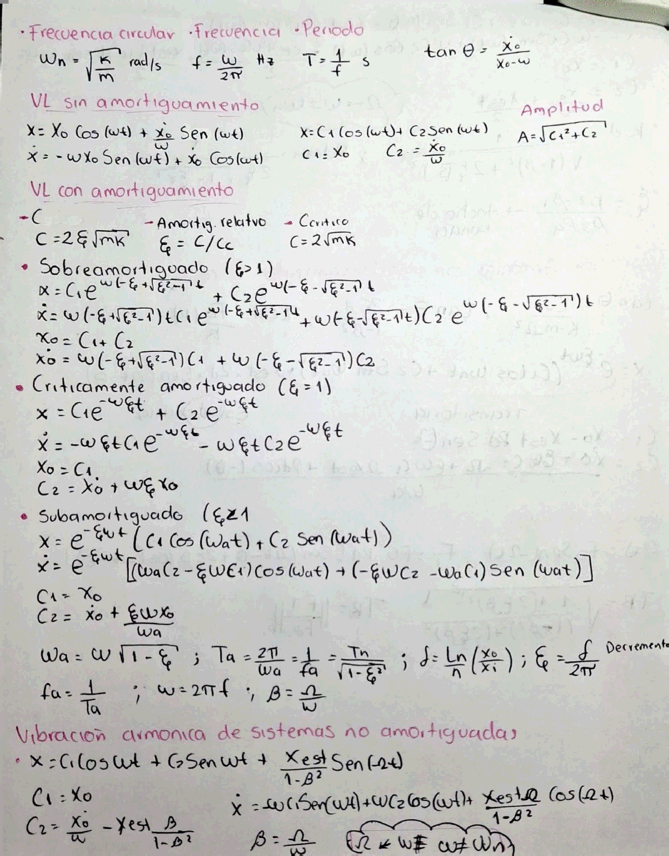 · Frecuencia circular · Frecuencia · Periodo
Wn = √(K/m) rad/s   f = ω/2π Hz   T = 1/f s   tan θ = ẋo/(xo·ω)
VL sin amortiguamiento
Amplitud
x = Xo Cos(ωt) + ẋo/ω Sen(ωt)   x = C1 Cos(ωt) + C2 Sen(ωt)   A = √(C1² + C2)
ẋ = -ωXo Sen(ωt) + ẋo Cos(ωt)   C1 = Xo   C2 = ẋo/ω
VL con amortiguamiento
- C   - Amortig. relativo   - Ccritico
C = 2ξ√mK   ξ = C/Cc   C = 2√mK
• Sobreamortiguado (ξ>1)
x = C1e^ω(-ξ+√ξ²-1)t + C2e^ω(-ξ-√ξ²-1)t
ẋ = ω(-ξ+√ξ²-1)t C1e^ω(-ξ+√ξ²-1)t + ω(-ξ-√ξ²-1 t) C2 e^ω(-ξ-√ξ²-1)t
Xo = C1 + C2
ẋo = ω(-ξ+√ξ²-1)C1 + ω(-ξ-√ξ²-1)C2
• Criticamente amortiguado (ξ=1)
x = C1e^-ωξt + C2e^-ωξt
ẋ = -ωξtC1e^-ωξt - ωξtC2e^-ωξt
Xo = C1
C2 = ẋo + ωξxo
• Subamortiguado (ξ<1
x = e^-ξωt (C1 Cos(ωat) + C2 Sen(ωat))
ẋ = e^-ξωt [(ωaC2 - ξωC1)Cos(ωat) + (-ξωC2 - ωaC1) Sen(ωat)]
C1 = Xo
C2 = ẋo + ξωxo/ωa
ωa = ω√(1-ξ) ; Ta = 2π/ωa = 1/fa = Tn/√(1-ξ²) ; δ = Ln/n (xo/xi) ; ξ = δ/2π Decremento
fa = 1/Ta ; ω = 2πf ; β = Ω/ω
Vibración armonica de sistemas no amortiguadas
• x = C1Cosωt + C2Senωt + Xest/(1-β²) Sen(Ωt)
C1 = Xo   ẋ = -ωC1Sen(ωt) + ωC2Cos(ωt) + XestΩ/(1-β²) Cos(Ωt)
C2 = ẋo/ω - Xest β/(1-β²)   β = Ω/ω